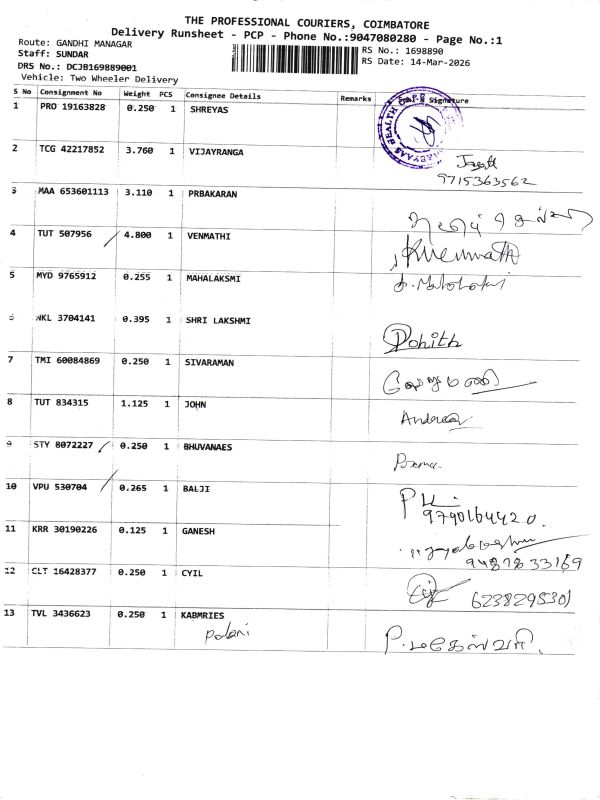 THE PROFESSIONAL COURIERS, COIMBATORE
Delivery Runsheet - PCP - Phone No.:9047080280 - Page No.:1
Route: GANDHI MANAGAR
Staff: SUNDAR
DRS No.: DCJB169889001
Vehicle: Two Wheeler Delivery
RS No.: 1698890
RS Date: 14-Mar-2026
S No Consignment No Weight PCS Consignee Details Remarks Signature
1 PRO 19163828 0.250 1 SHREYAS
2 TCG 42217852 3.760 1 VIJAYRANGA
9715363562
3 MAA 653601113 3.110 1 PRBAKARAN
4 TUT 507956 4.800 1 VENMATHI
5 MYD 9765912 0.255 1 MAHALAKSMI
NKL 3704141 0.395 1 SHRI LAKSHMI
Rohith
7 TMI 60084869 0.250 1 SIVARAMAN
8 TUT 834315 1.125 1 JOHN
Andrea
9 STY 8072227 0.250 1 BHUVANAES
Prema
10 VPU 530704 0.265 1 BALJI
9790164420.
11 KRR 30190226 0.125 1 GANESH
9487833169
12 CLT 16428377 0.250 1 CYIL
13 TVL 3436623 0.250 1 KABMRIES
Palani
P. மகேஸ்வரி.